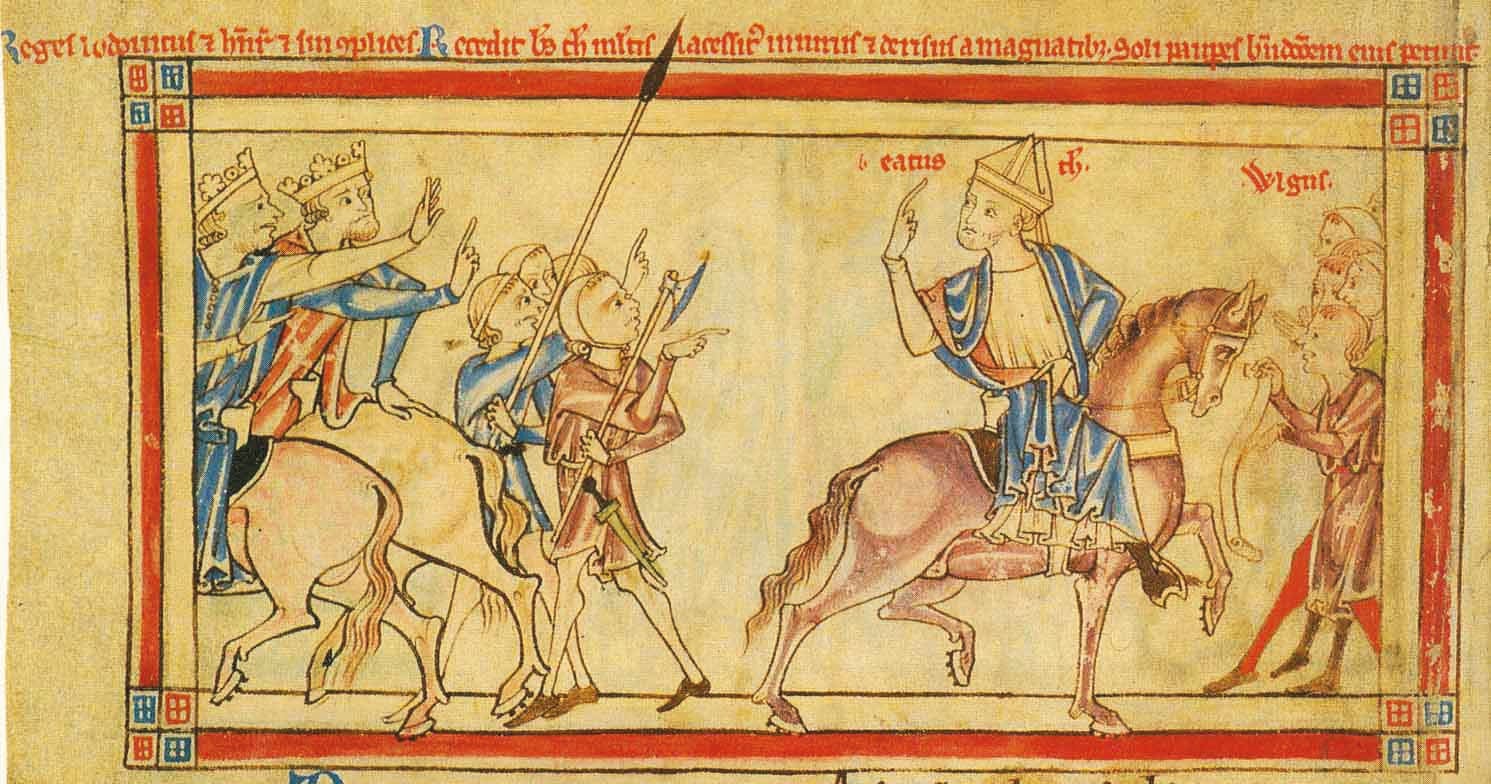 Reges lodovicus ⁊ hñr̃ ⁊ sui cplices Recedit bs th mestis lacessit᷒ iniuriis ⁊ derisus a magnatibꝫ. Soli paupes bñdcc̃em eius petunt.
beatus th. Wlgus.